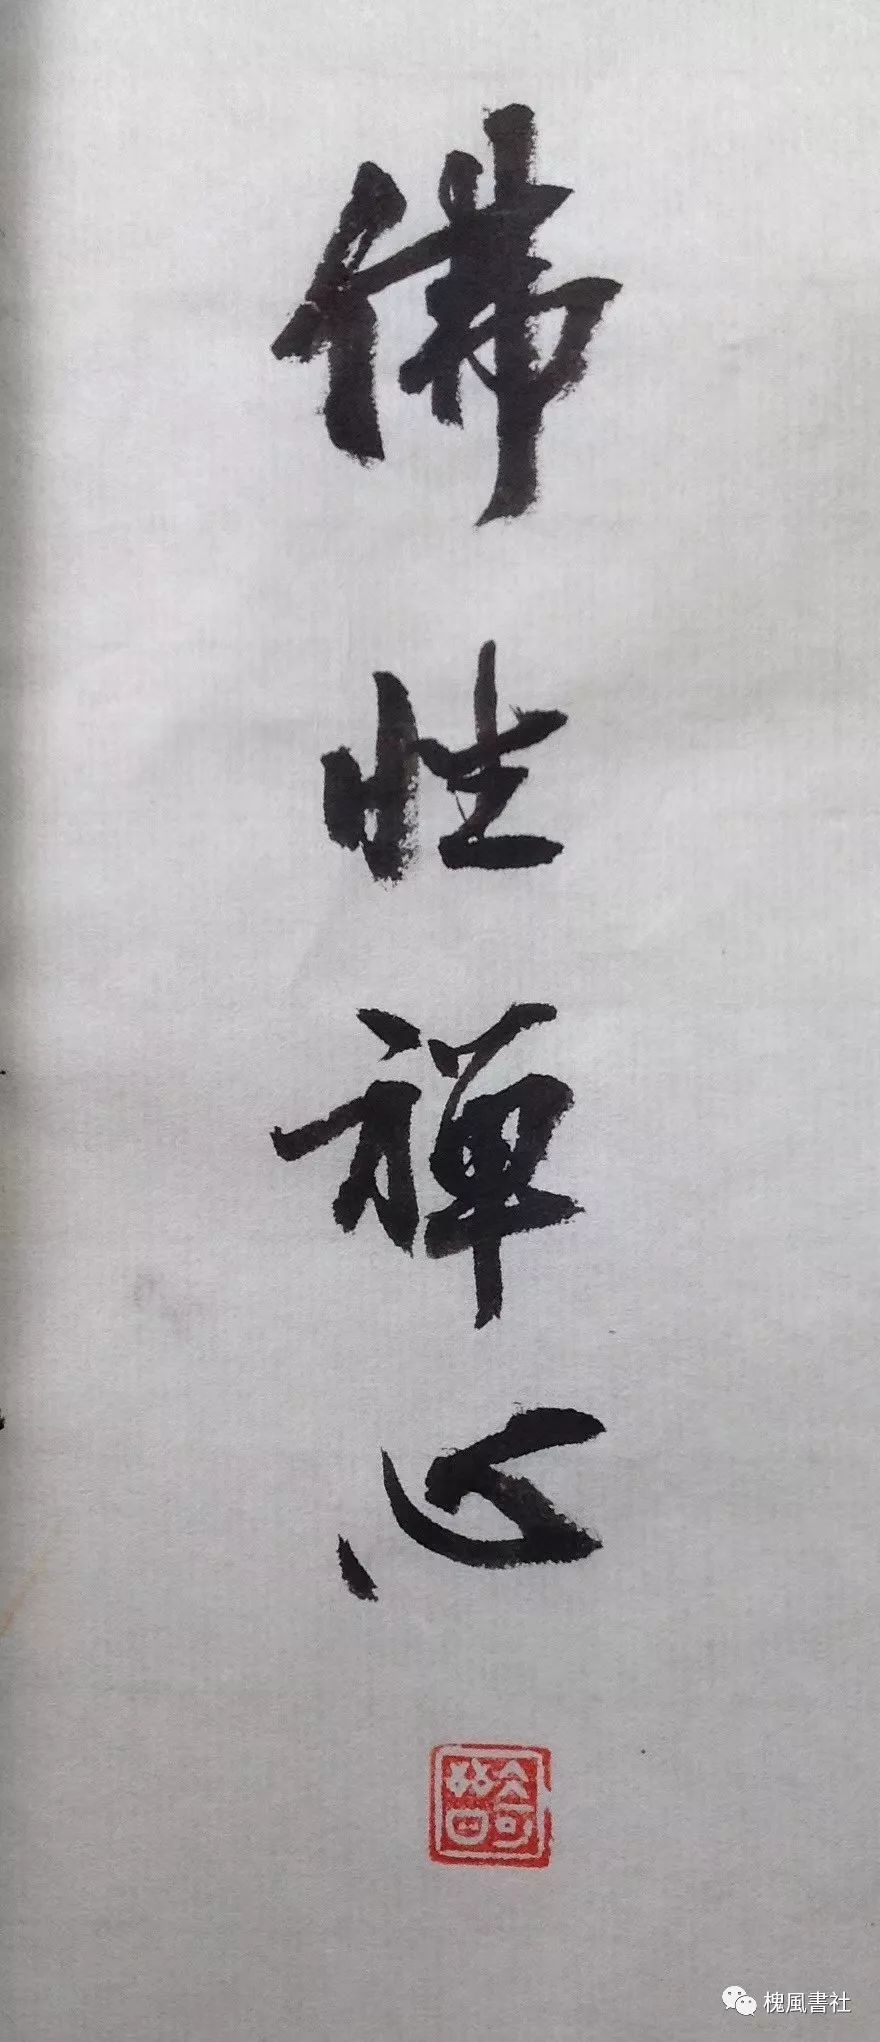 佛性禅心
槐風書社